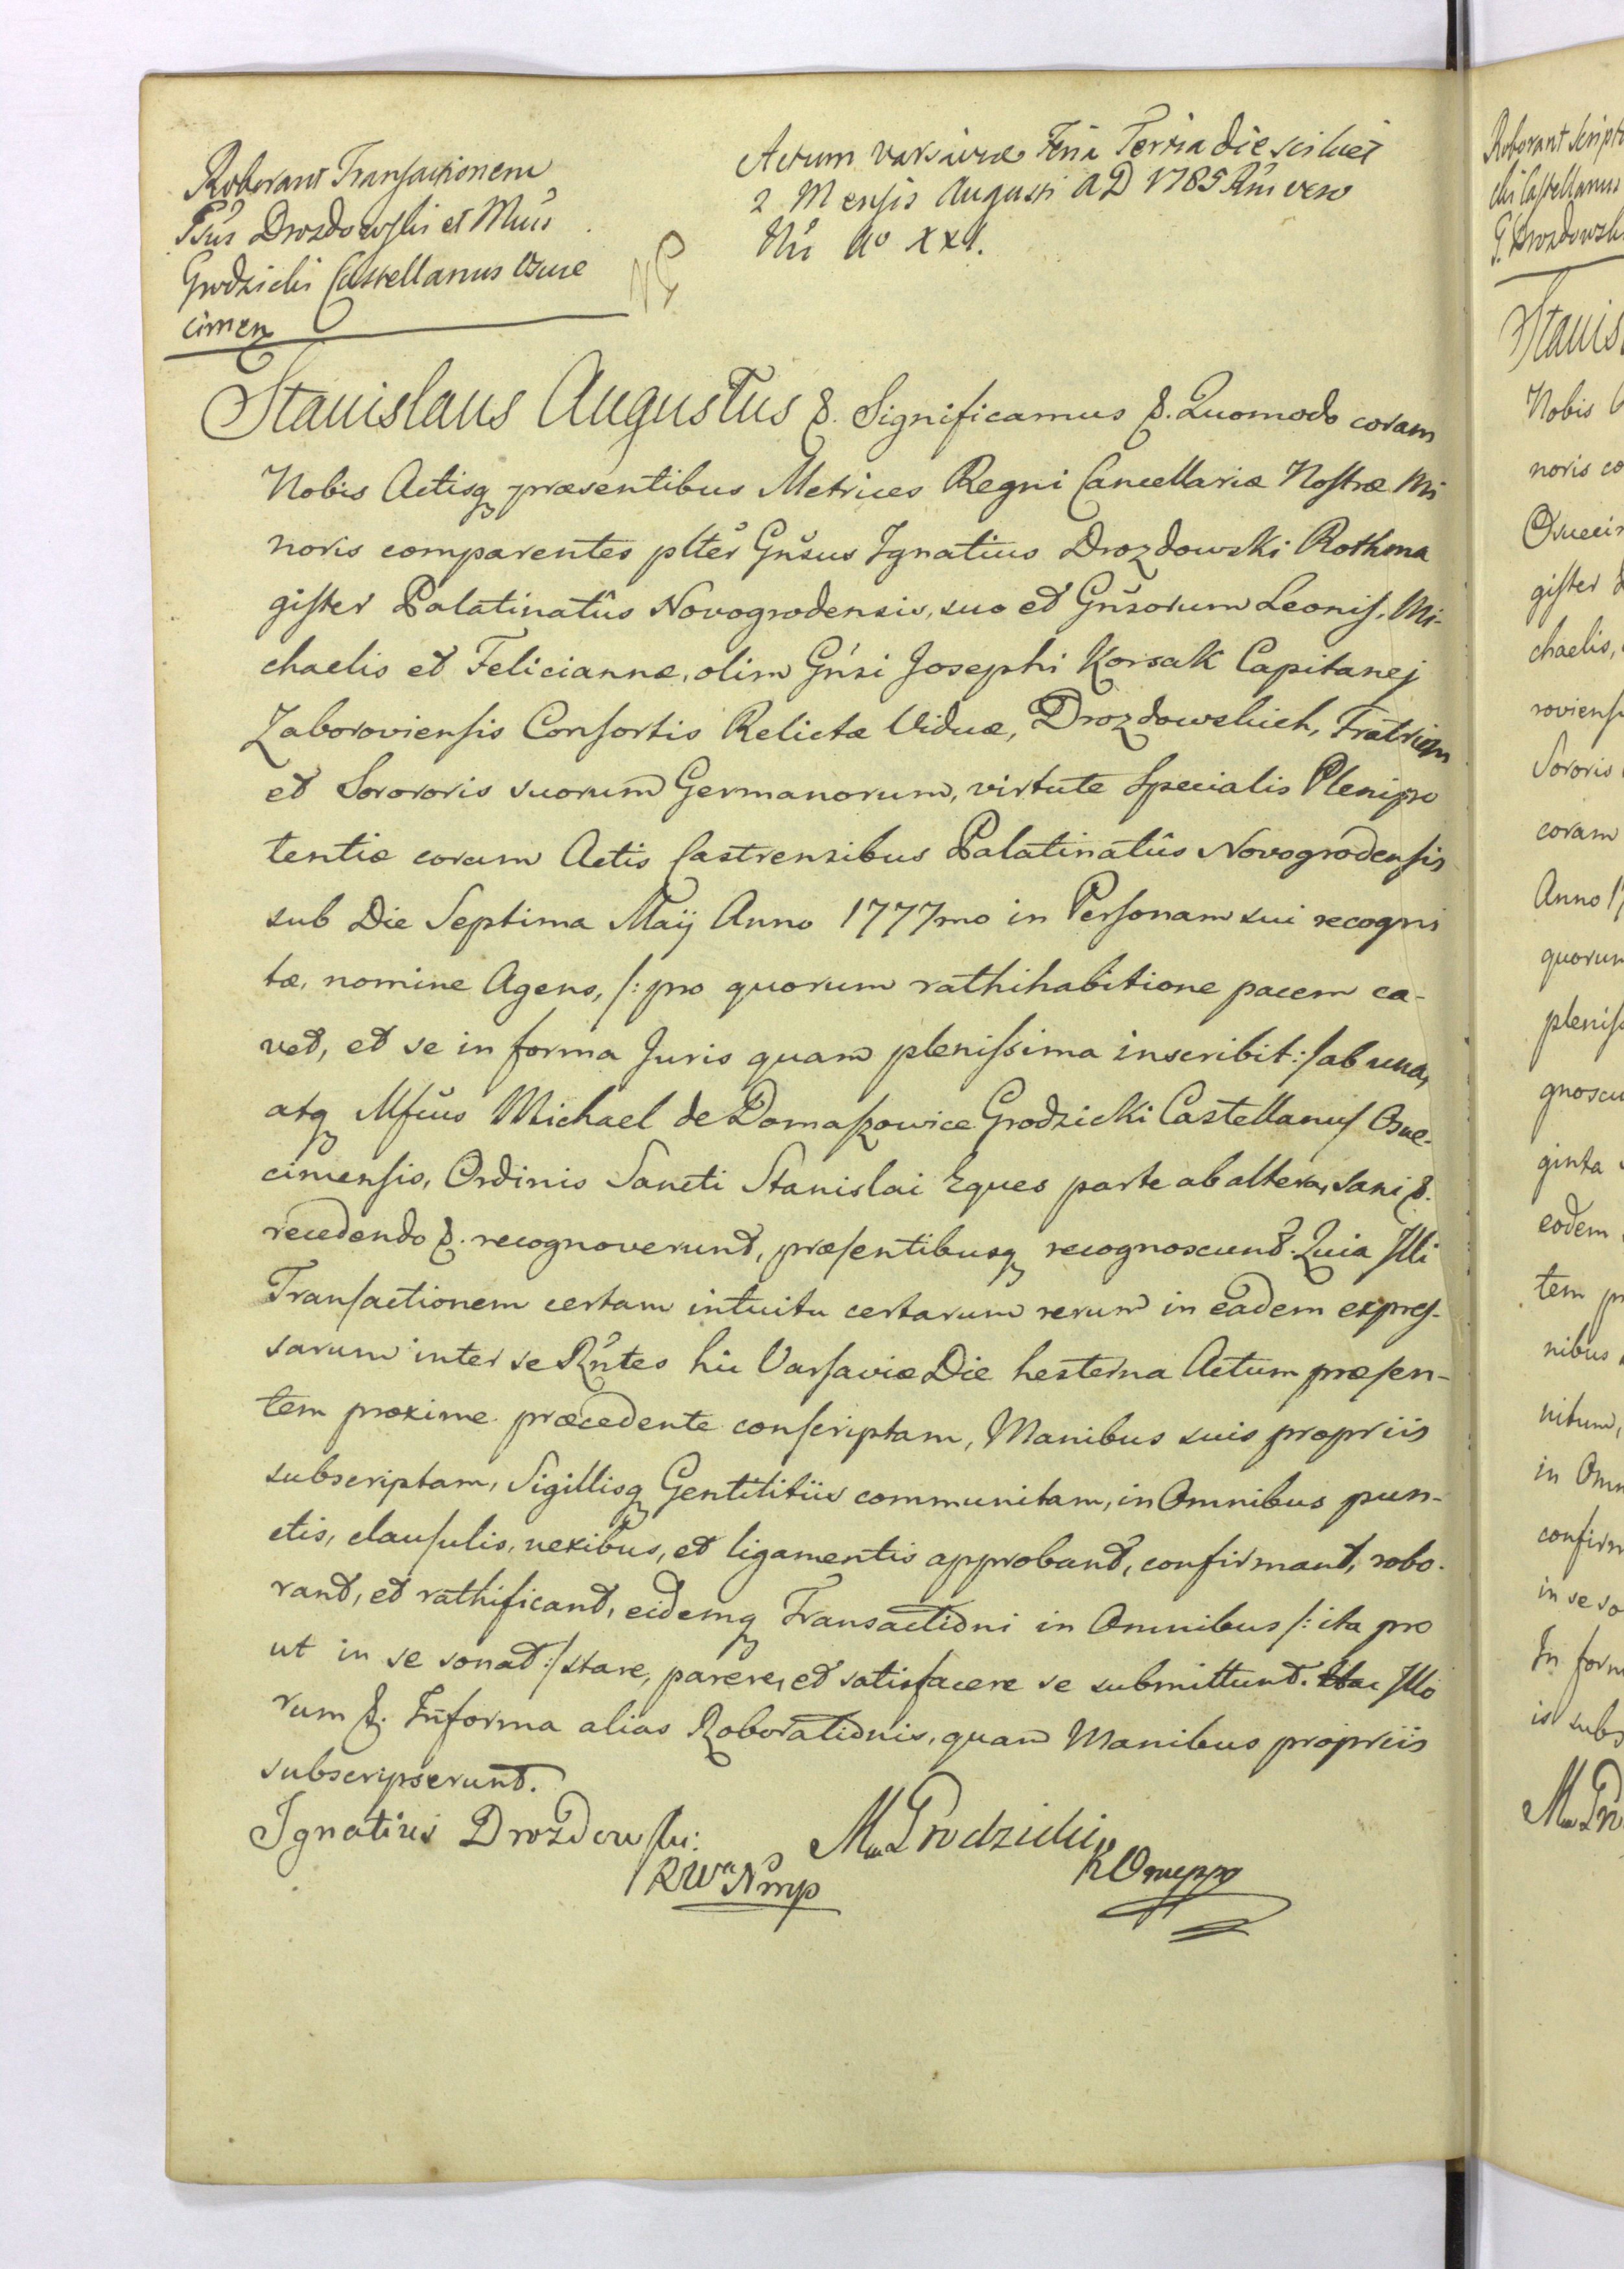 Roborant Transactionem
Gsus Drozdowski et Mcus
Grodzicki Castellanus Osue
cimen
Actum varsaviæ Feria Tertia die scilicet
2 Mensis Augusti AD 1785 Rni vero
Nri Ao XXI.
Stanislaus Augustus &. Significamus &. Quomodo coram
Nobis Actisq præsentibus Metrices Regni Cancellariæ Nostræ Mi
noris comparentes plter Gnsus Ignatius Drozdowski Rothma
gister Palatinatûs Novogrodensis, suo et Gnsorum Leonis, Mi-
chaelis et Feliciannæ, olim Gnsi Josephi Korsak Capitanej
Zaboroviensis Consortis Relictæ Viduæ, Drozdowskich, Fratrum
et Sorororis suorum Germanorum, virtute specialis Plenipo
tentiæ coram Actis Castrensibus Palatinatûs Novogrodensis
sub Die Septima Maij Anno 1777mo in Personam sui recogni
tæ, nomine Agens, /: pro quorum rathihabitione pacem ca-
vet, et se in forma Juris quam plenissima inscribit :/ ab una,
atq Mfcus Michael de Domaszowice Grodzicki Castellanus Osue-
cimensis, Ordinis Sancti Stanislai Eques parte ab altera, sani &.
recedendo &. recognoverunt, præsentibusq recognoscunt. Quia Illi
Transactionem certam intuitu certarum rerum in eadem expres-
sarum inter se Rntes hic Varsaviæ Die hesterna Actum præsen-
tem proxime præcedente conscriptam, Manibus suis propriis
subscriptam, Sigillisq Gentilitiis communitam, in Omnibus pun-
ctis, clausulis, nexibus, et ligamentis approbant, confirmant, robo-
rant, et rathificant, eidemq Transactioni in Omnibus /: ita pro
ut in se sonat :/ stare, parere, et satisfacere se submittunt. Illo
rum &. In forma alias Roborationis, quam Manibus propriis
subscripserunt.
Ignatius Drozdowski
RWa Nmp
M Grodzicki
KOmppp
Roborant Script
cki Castellanus
G. Drozdowski
Stanis
Nobis
noris co
Osueci
gister
chaelis,
roviens
Sororis
coram
Anno 1
quorum
pleniss
gnoscu
ginta
eodem
tem pr
nibus
nitum,
in Omn
confirm
in se so
In form
is subs
M Gro